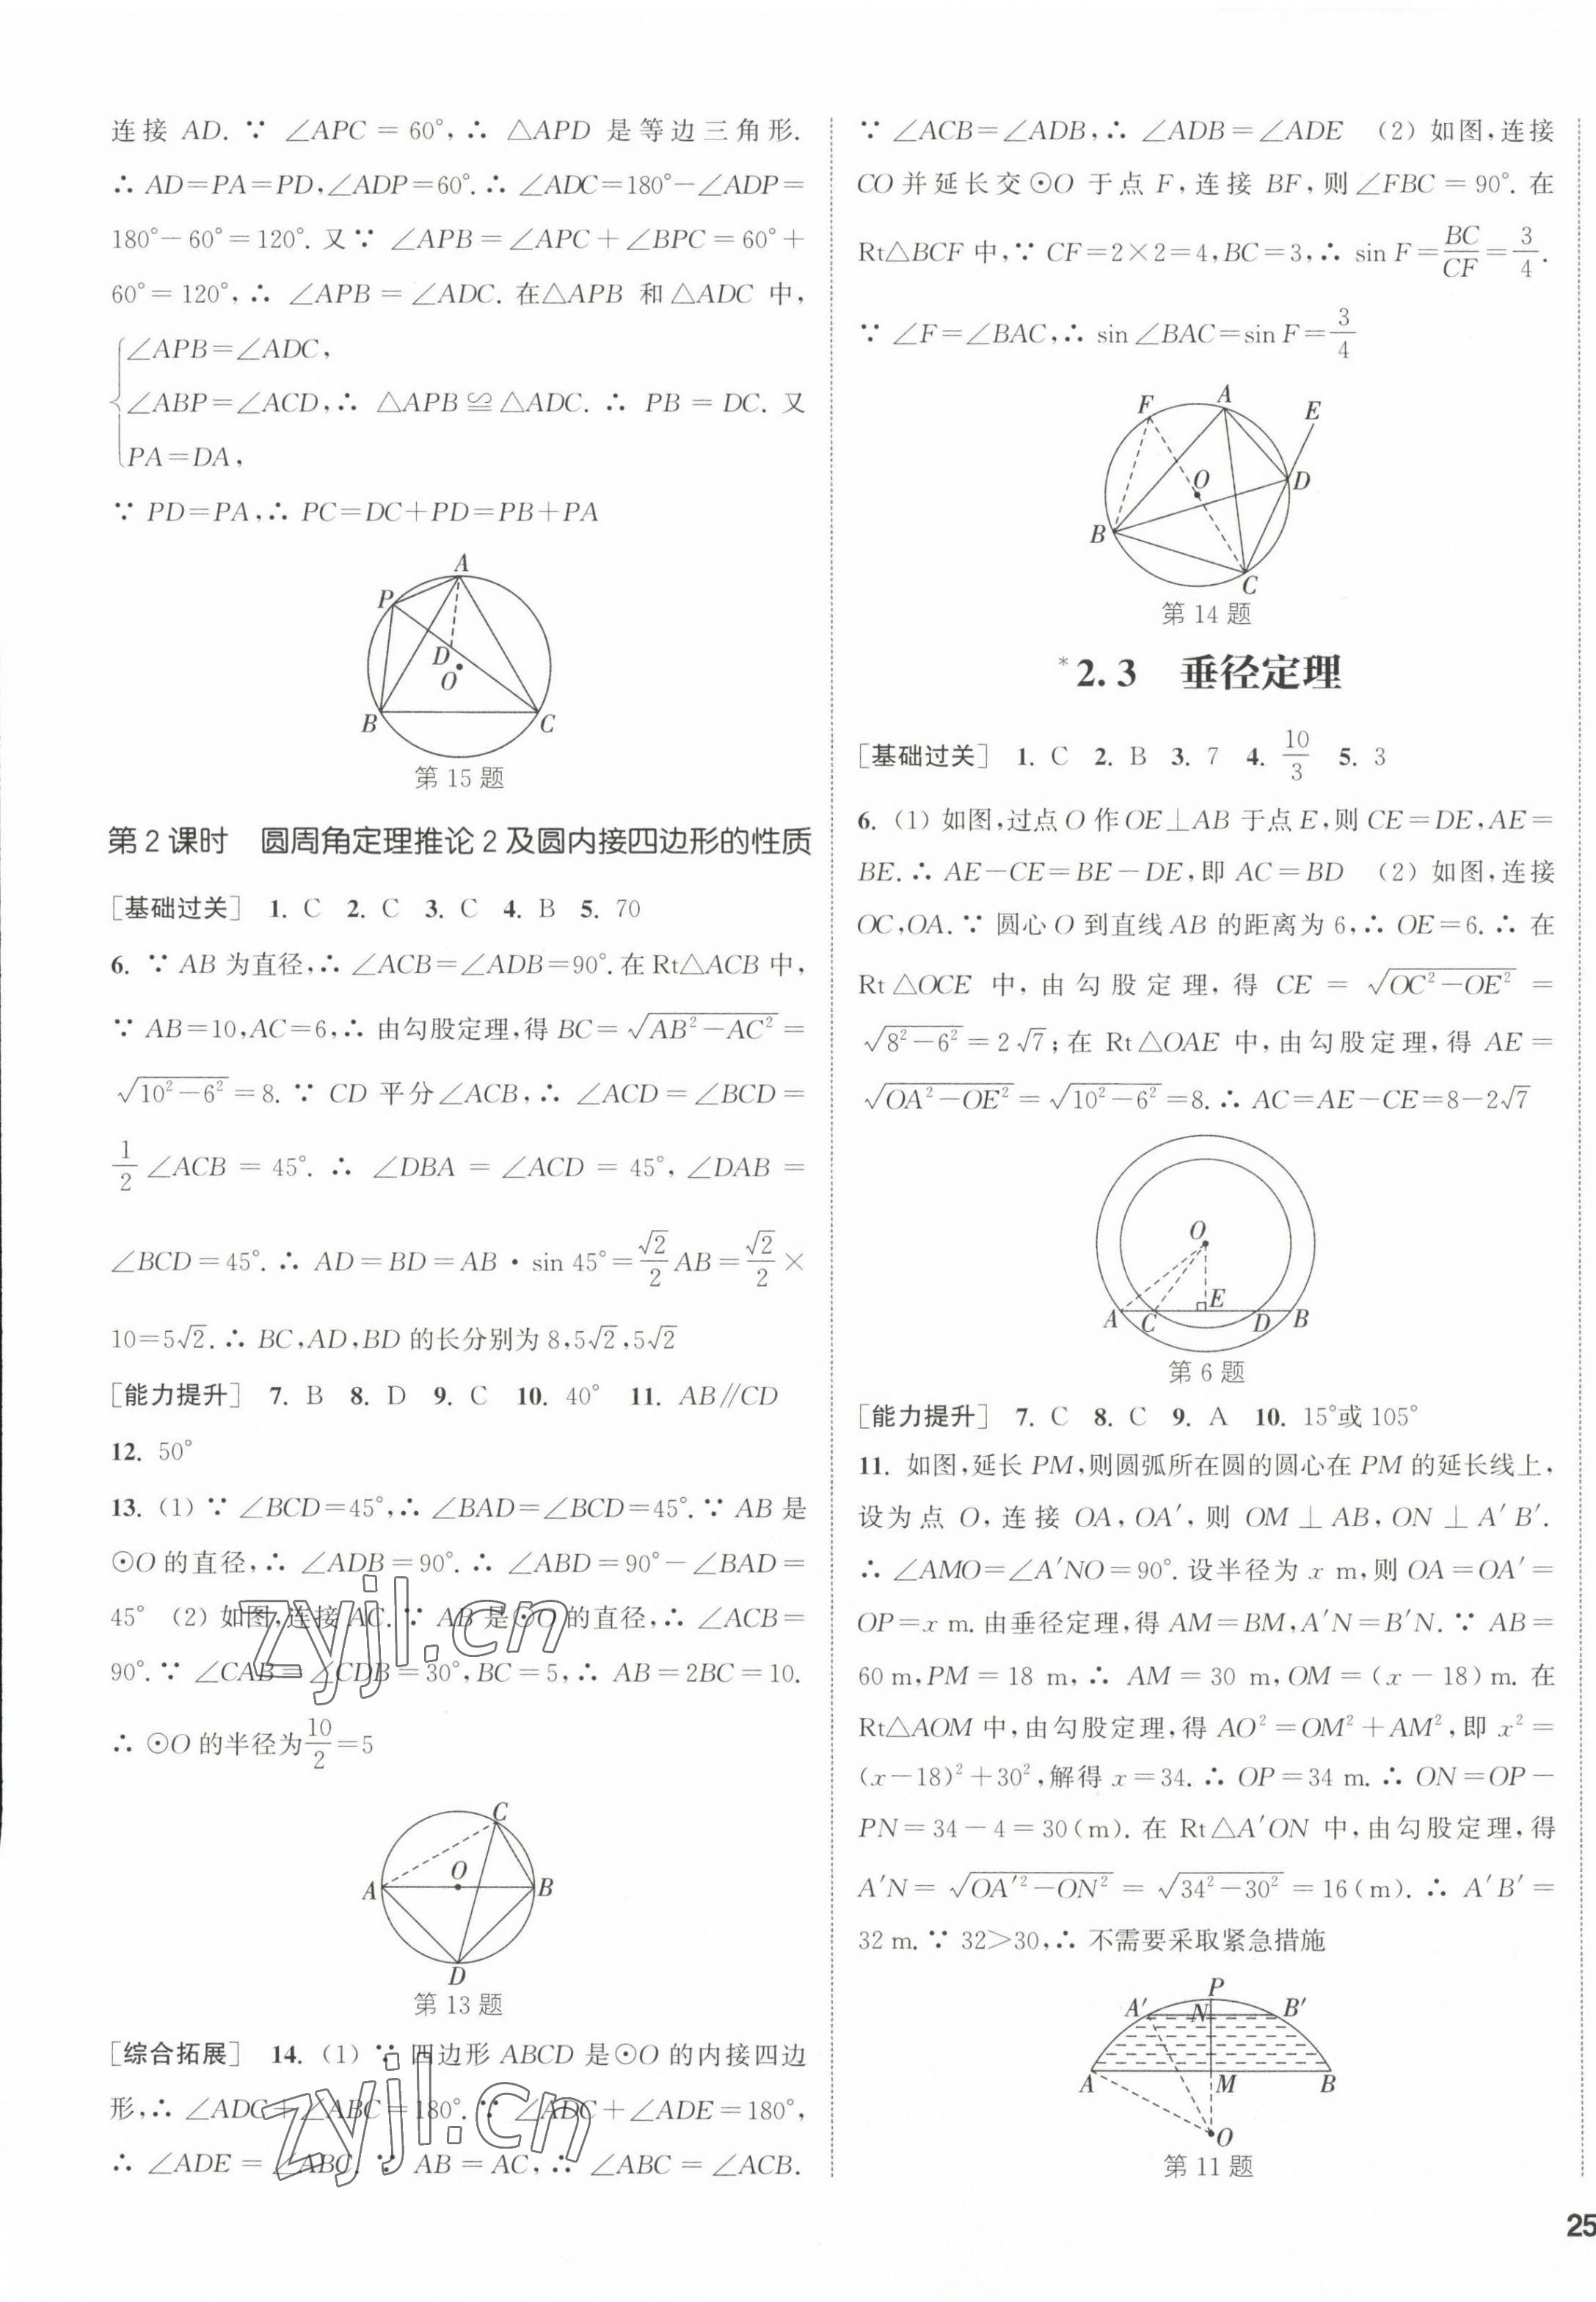 连接 AD. ∵ ∠APC = 60°, ∴ △APD 是等边三角形.
∴ AD=PA=PD,∠ADP=60°.∴ ∠ADC=180°-∠ADP=
180°-60°=120°. 又∵ ∠APB=∠APC+∠BPC=60°+
60°=120°, ∴ ∠APB=∠ADC. 在△APB 和△ADC 中,
∠APB=∠ADC,
∠ABP=∠ACD,∴ △APB≌△ADC. ∴ PB=DC. 又
PA=DA,
∵ PD=PA,∴ PC=DC+PD=PB+PA
A
P
D
O
B
C
第 15 题
第 2 课时 圆周角定理推论 2 及圆内接四边形的性质
[基础过关] 1. C 2. C 3. C 4. B 5. 70
6. ∵ AB 为直径,∴ ∠ACB=∠ADB=90°.在 Rt△ACB 中,
∵ AB=10,AC=6,∴ 由勾股定理,得 BC=√(AB²-AC²)=
√(10²-6²)=8. ∵ CD 平分∠ACB,∴ ∠ACD=∠BCD=
1/2 ∠ACB = 45°. ∴ ∠DBA = ∠ACD = 45°, ∠DAB =
∠BCD=45°. ∴ AD=BD=AB·sin 45°=√2/2 AB=√2/2×
10=5√2. ∴ BC,AD,BD 的长分别为 8,5√2,5√2
[能力提升] 7. B 8. D 9. C 10. 40° 11. AB∥CD
12. 50°
13. (1) ∵ ∠BCD=45°,∴ ∠BAD=∠BCD=45°.∵ AB 是
⊙O 的直径,∴ ∠ADB=90°. ∴ ∠ABD=90°-∠BAD=
45° (2) 如图,连接 AC. ∵ AB 是⊙O 的直径,∴ ∠ACB=
90°.∵ ∠CAB=∠CDB=30°,BC=5,∴ AB=2BC=10.
∴ ⊙O 的半径为10/2=5
zyjl.cn
C
O
A
B
D
第 13 题
[综合拓展] 14. (1) ∵ 四边形 ABCD 是⊙O 的内接四边
形,∴ ∠ADC+∠ABC=180°. ∵ ∠ADC+∠ADE=180°,
∴ ∠ADE=∠ABC. ∵ AB=AC,∴ ∠ABC=∠ACB.
zyjl.cn
∵ ∠ACB=∠ADB,∴ ∠ADB=∠ADE (2) 如图,连接
CO 并延长交⊙O 于点 F,连接 BF,则∠FBC=90°. 在
Rt△BCF 中,∵ CF=2×2=4,BC=3,∴ sin F=BC/CF=3/4.
∵ ∠F=∠BAC,∴ sin∠BAC=sin F=3/4
F
A
E
O
D
B
C
第 14 题
*2.3 垂径定理
[基础过关] 1. C 2. B 3. 7 4. 10/3 5. 3
6. (1) 如图,过点 O 作 OE⊥AB 于点 E,则 CE=DE,AE=
BE.∴ AE-CE=BE-DE,即 AC=BD (2) 如图,连接
OC,OA.∵ 圆心 O 到直线 AB 的距离为 6,∴ OE=6.∴ 在
Rt△OCE 中,由勾股定理,得 CE = √(OC²-OE²) =
√(8²-6²)=2√7;在 Rt△OAE 中,由勾股定理,得 AE=
√(OA²-OE²)=√(10²-6²)=8.∴ AC=AE-CE=8-2√7
O
E
A
C
D
B
第 6 题
[能力提升] 7. C 8. C 9. A 10. 15°或 105°
11. 如图,延长 PM,则圆弧所在圆的圆心在 PM 的延长线上,
设为点 O,连接 OA,OA′,则 OM⊥AB,ON⊥A′B′.
∴ ∠AMO=∠A′NO=90°. 设半径为 x m,则 OA=OA′=
OP=x m. 由垂径定理,得 AM=BM,A′N=B′N. ∵ AB=
60 m,PM=18 m,∴ AM=30 m,OM=(x-18) m. 在
Rt△AOM 中,由勾股定理,得 AO²=OM²+AM²,即 x²=
(x-18)²+30²,解得 x=34. ∴ OP=34 m. ∴ ON=OP-
PN=34-4=30(m). 在 Rt△A′ON 中,由勾股定理,得
A′N=√(OA′²-ON²)=√(34²-30²)=16(m). ∴ A′B′=
32 m. ∵ 32>30,∴ 不需要采取紧急措施
P
A′
N
B′
A
M
B
O
第 11 题
25